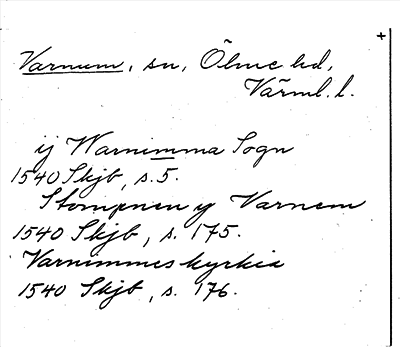 +
Varnum, sn, Ölme hd,
Värml. l.
ij Warnimma Sogn
1540 Skjb, s. 5.
Stompnen y Varnem
1540 Skjb, s. 175.
Varnimmes kyrkia
1540 Skjb, s. 176.